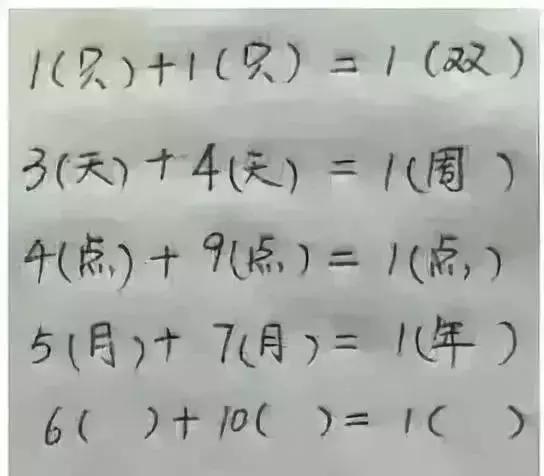 1(只)+1(只)=1(双)
3(天)+4(天)=1(周 )
4(点)+9(点)=1(点)
5(月)+7(月)=1(年 )
6( )+10( )=1( )